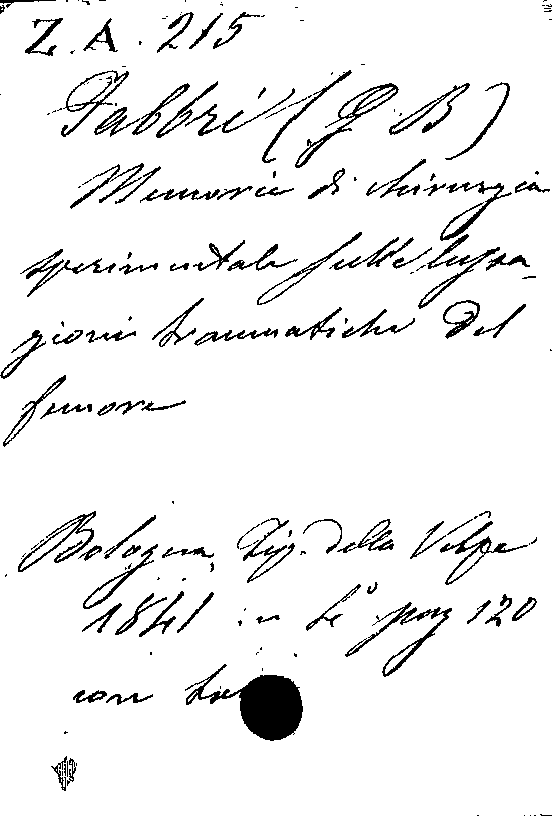 Z. A. 215
Fabbri (G B)
Memorie di chirurgia
sperimentale sulle lussa-
gioni traumatiche del
femore
Bologna, Tip. della Volpe
1841 in 4° pag 120
con